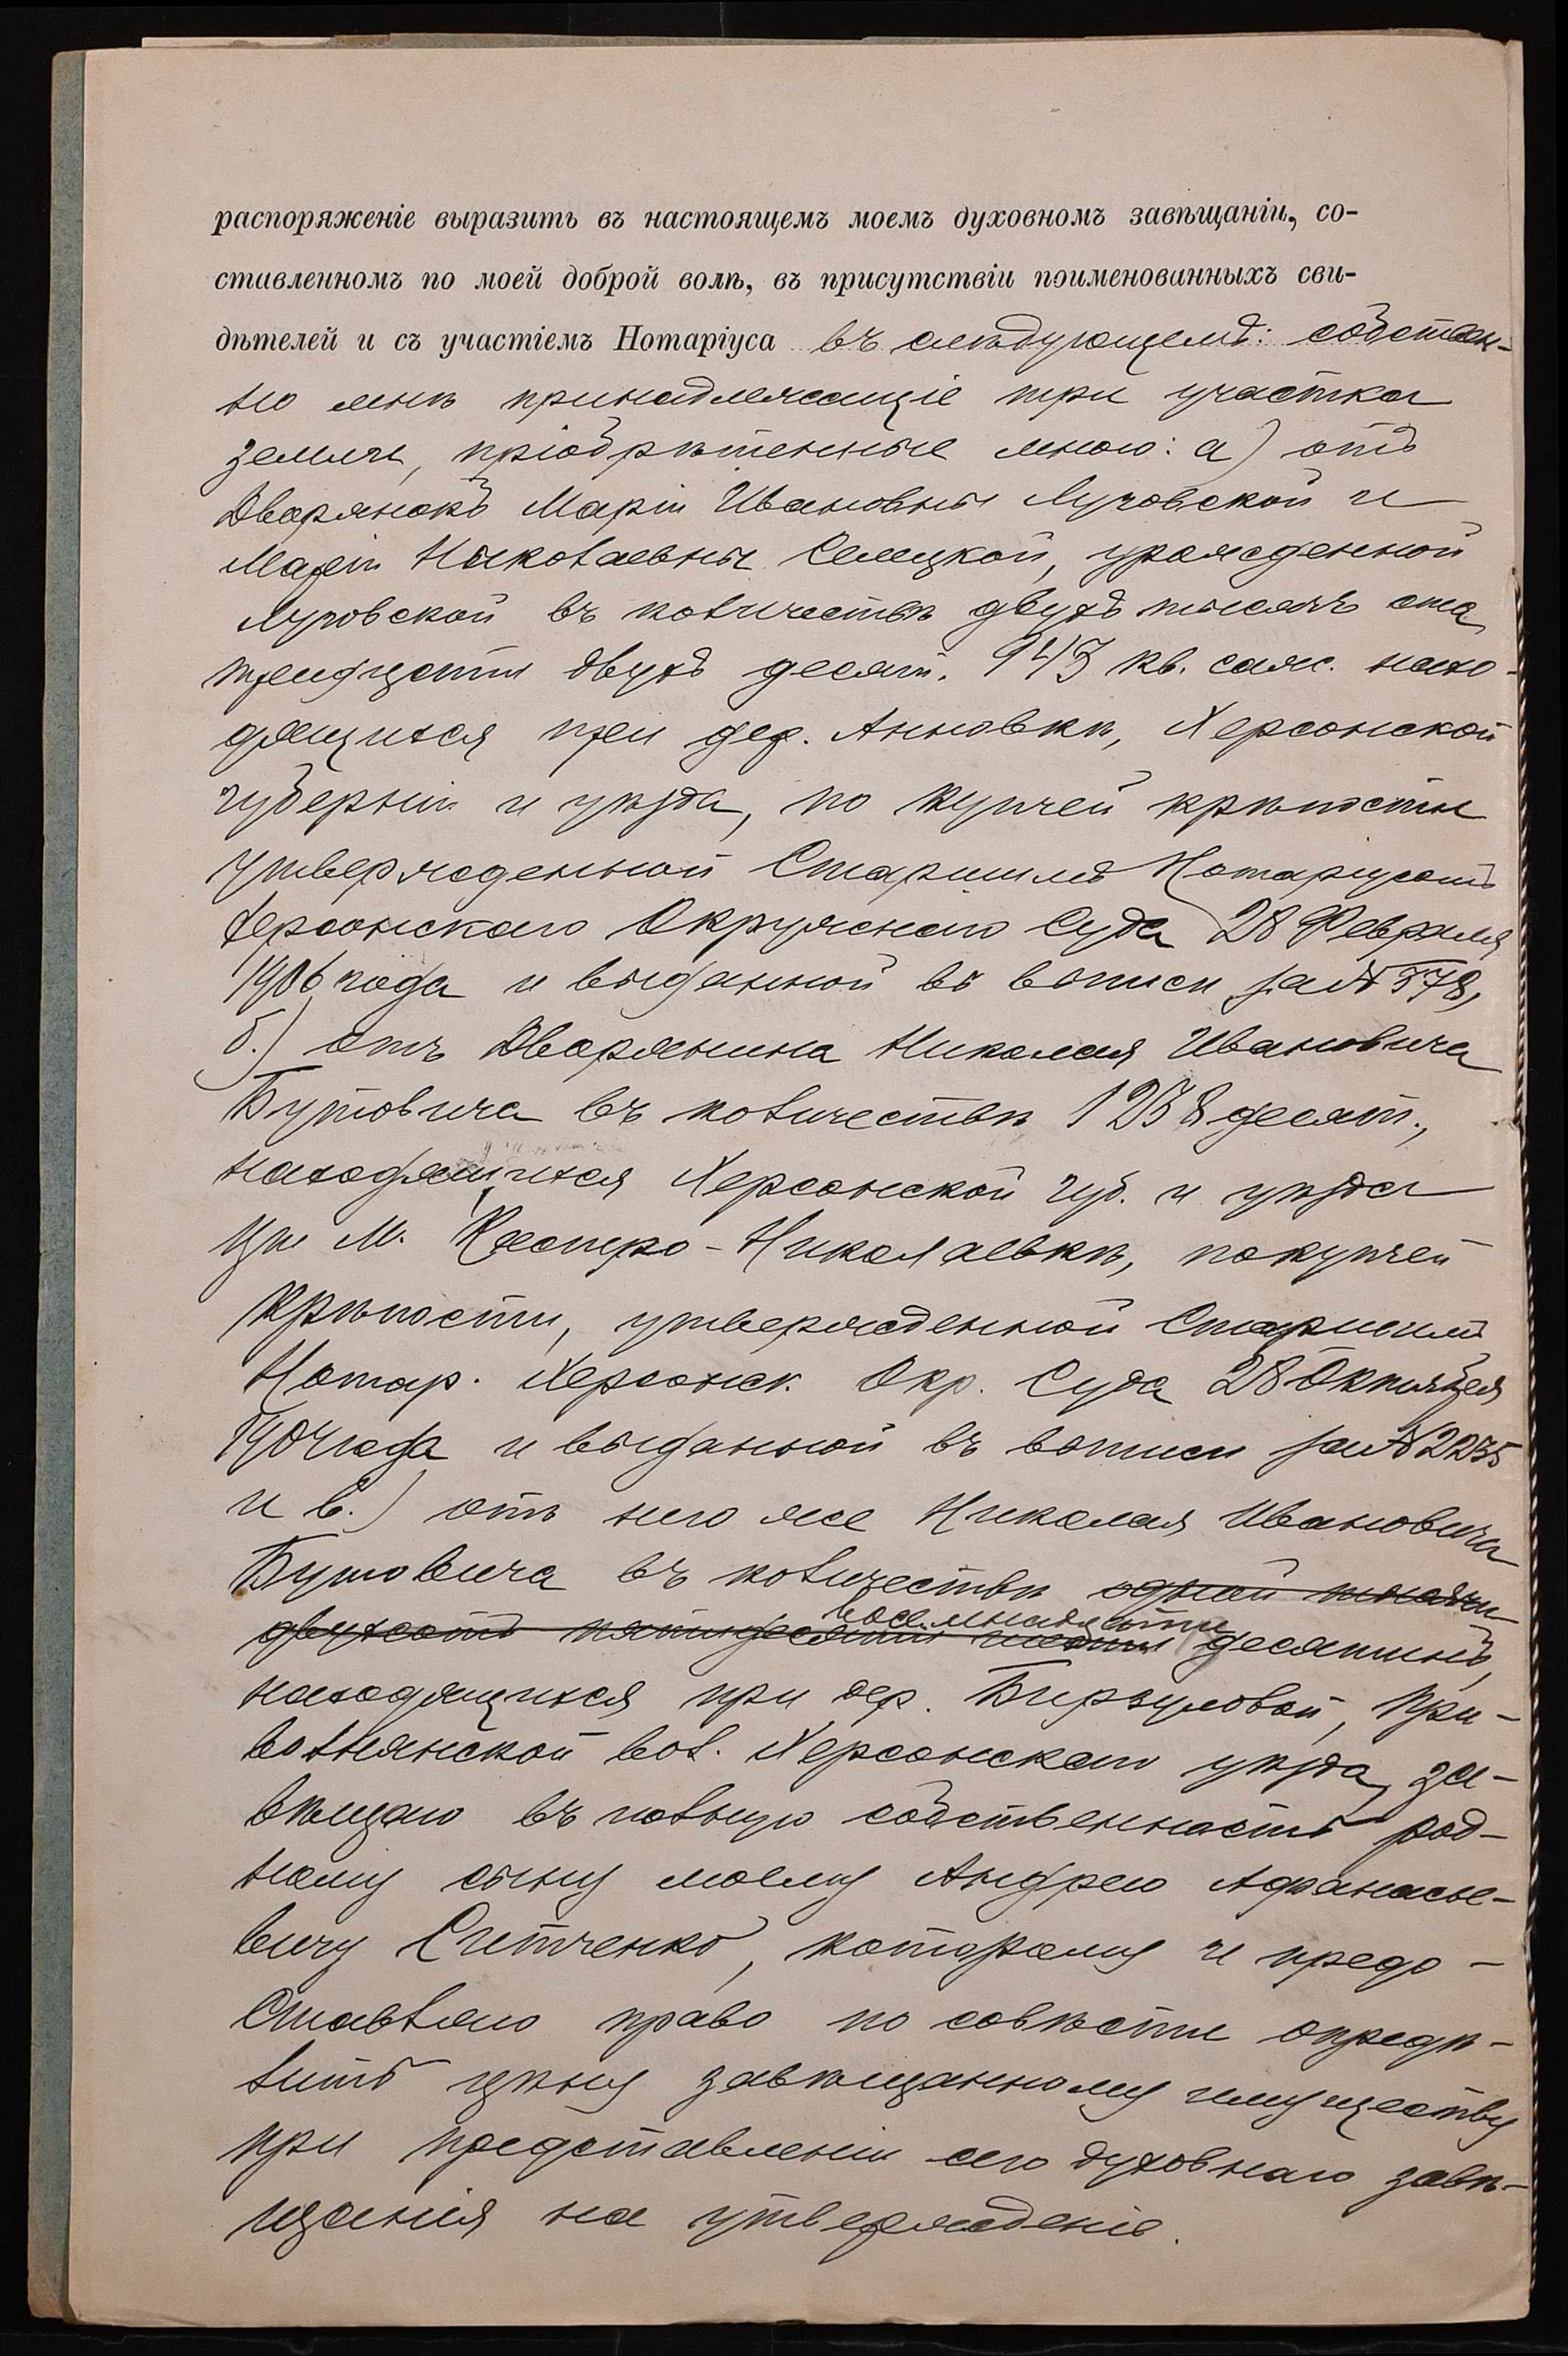 распоряженіе выразить въ настоящемъ моемъ духовномъ завѣщаніи, со-
ставленномъ по моей доброй волѣ, въ присутствіи поименованныхъ сви-
дѣтелей и съ участіемъ Нотаріуса въ слѣдующемъ: собствен-
но мнѣ принадлежащіе три участка
земли, пріобрѣтенные мною: а) отъ
Дворянокъ Маріи Ивановны Луговской и
Маріи Николаевны Селецкой, урожденной
Луговской въ количествѣ двухъ тысячъ ста
тридцати двухъ десят. 943 кв. саж. нахо-
дящихся при дер. Анновкѣ, Херсонской
губерніи и уѣзда, по купчей крѣпости
утвержденной Старшимъ Нотаріусомъ
Херсонскаго Окружнаго Суда 28 Февраля
1906 года и выданной въ выписи за № 378,
б.) отъ Дворянина Николая Ивановича
Бутовича въ количествѣ 1258 десят.,
находящихся Херсонской губ. и уѣзда
при м. Касперо-Николаевкѣ, по купчей
крѣпости, утвержденной Старшимъ
Нотар. Херсонск. Окр. Суда 28 Октября
1904 года и выданной въ выписи за № 2235
и в.) отъ него же Николая Ивановича
Бутовича въ количествѣ одной тысячи
двухсотъ пятидесяти восемнадцати десятинъ,
находящихся при дер. Бирзуловой, При-
вольнянской вол. Херсонскаго уѣзда, за-
вѣщаю въ полную собственность род-
ному сыну моему Андрею Афанасье-
вичу Ситченко, которому и предо-
ставляю право по совѣсти опредѣ-
лить цѣну завѣщанному имуществу
при представленіи сего духовнаго завѣ-
щанія на утвержденіе.